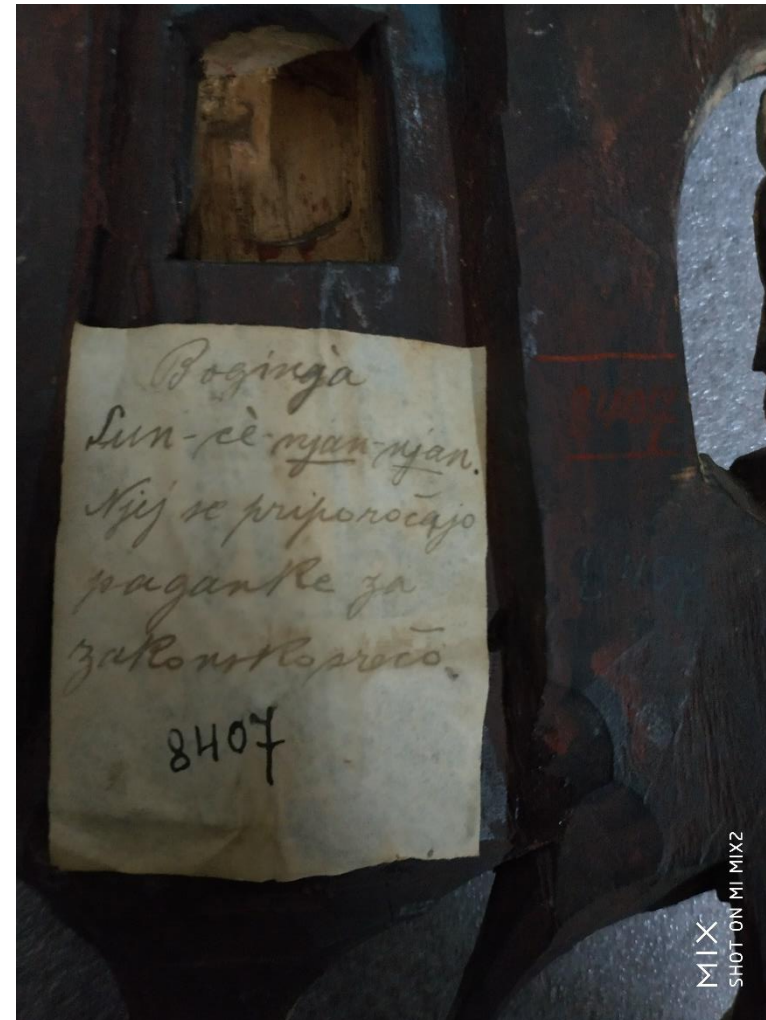 Boginja
Sun-cè-njan-njan.
Njej se priporočajo
paganke za
zakonsko srečo.
8407
MIX
SHOT ON MI MIX2